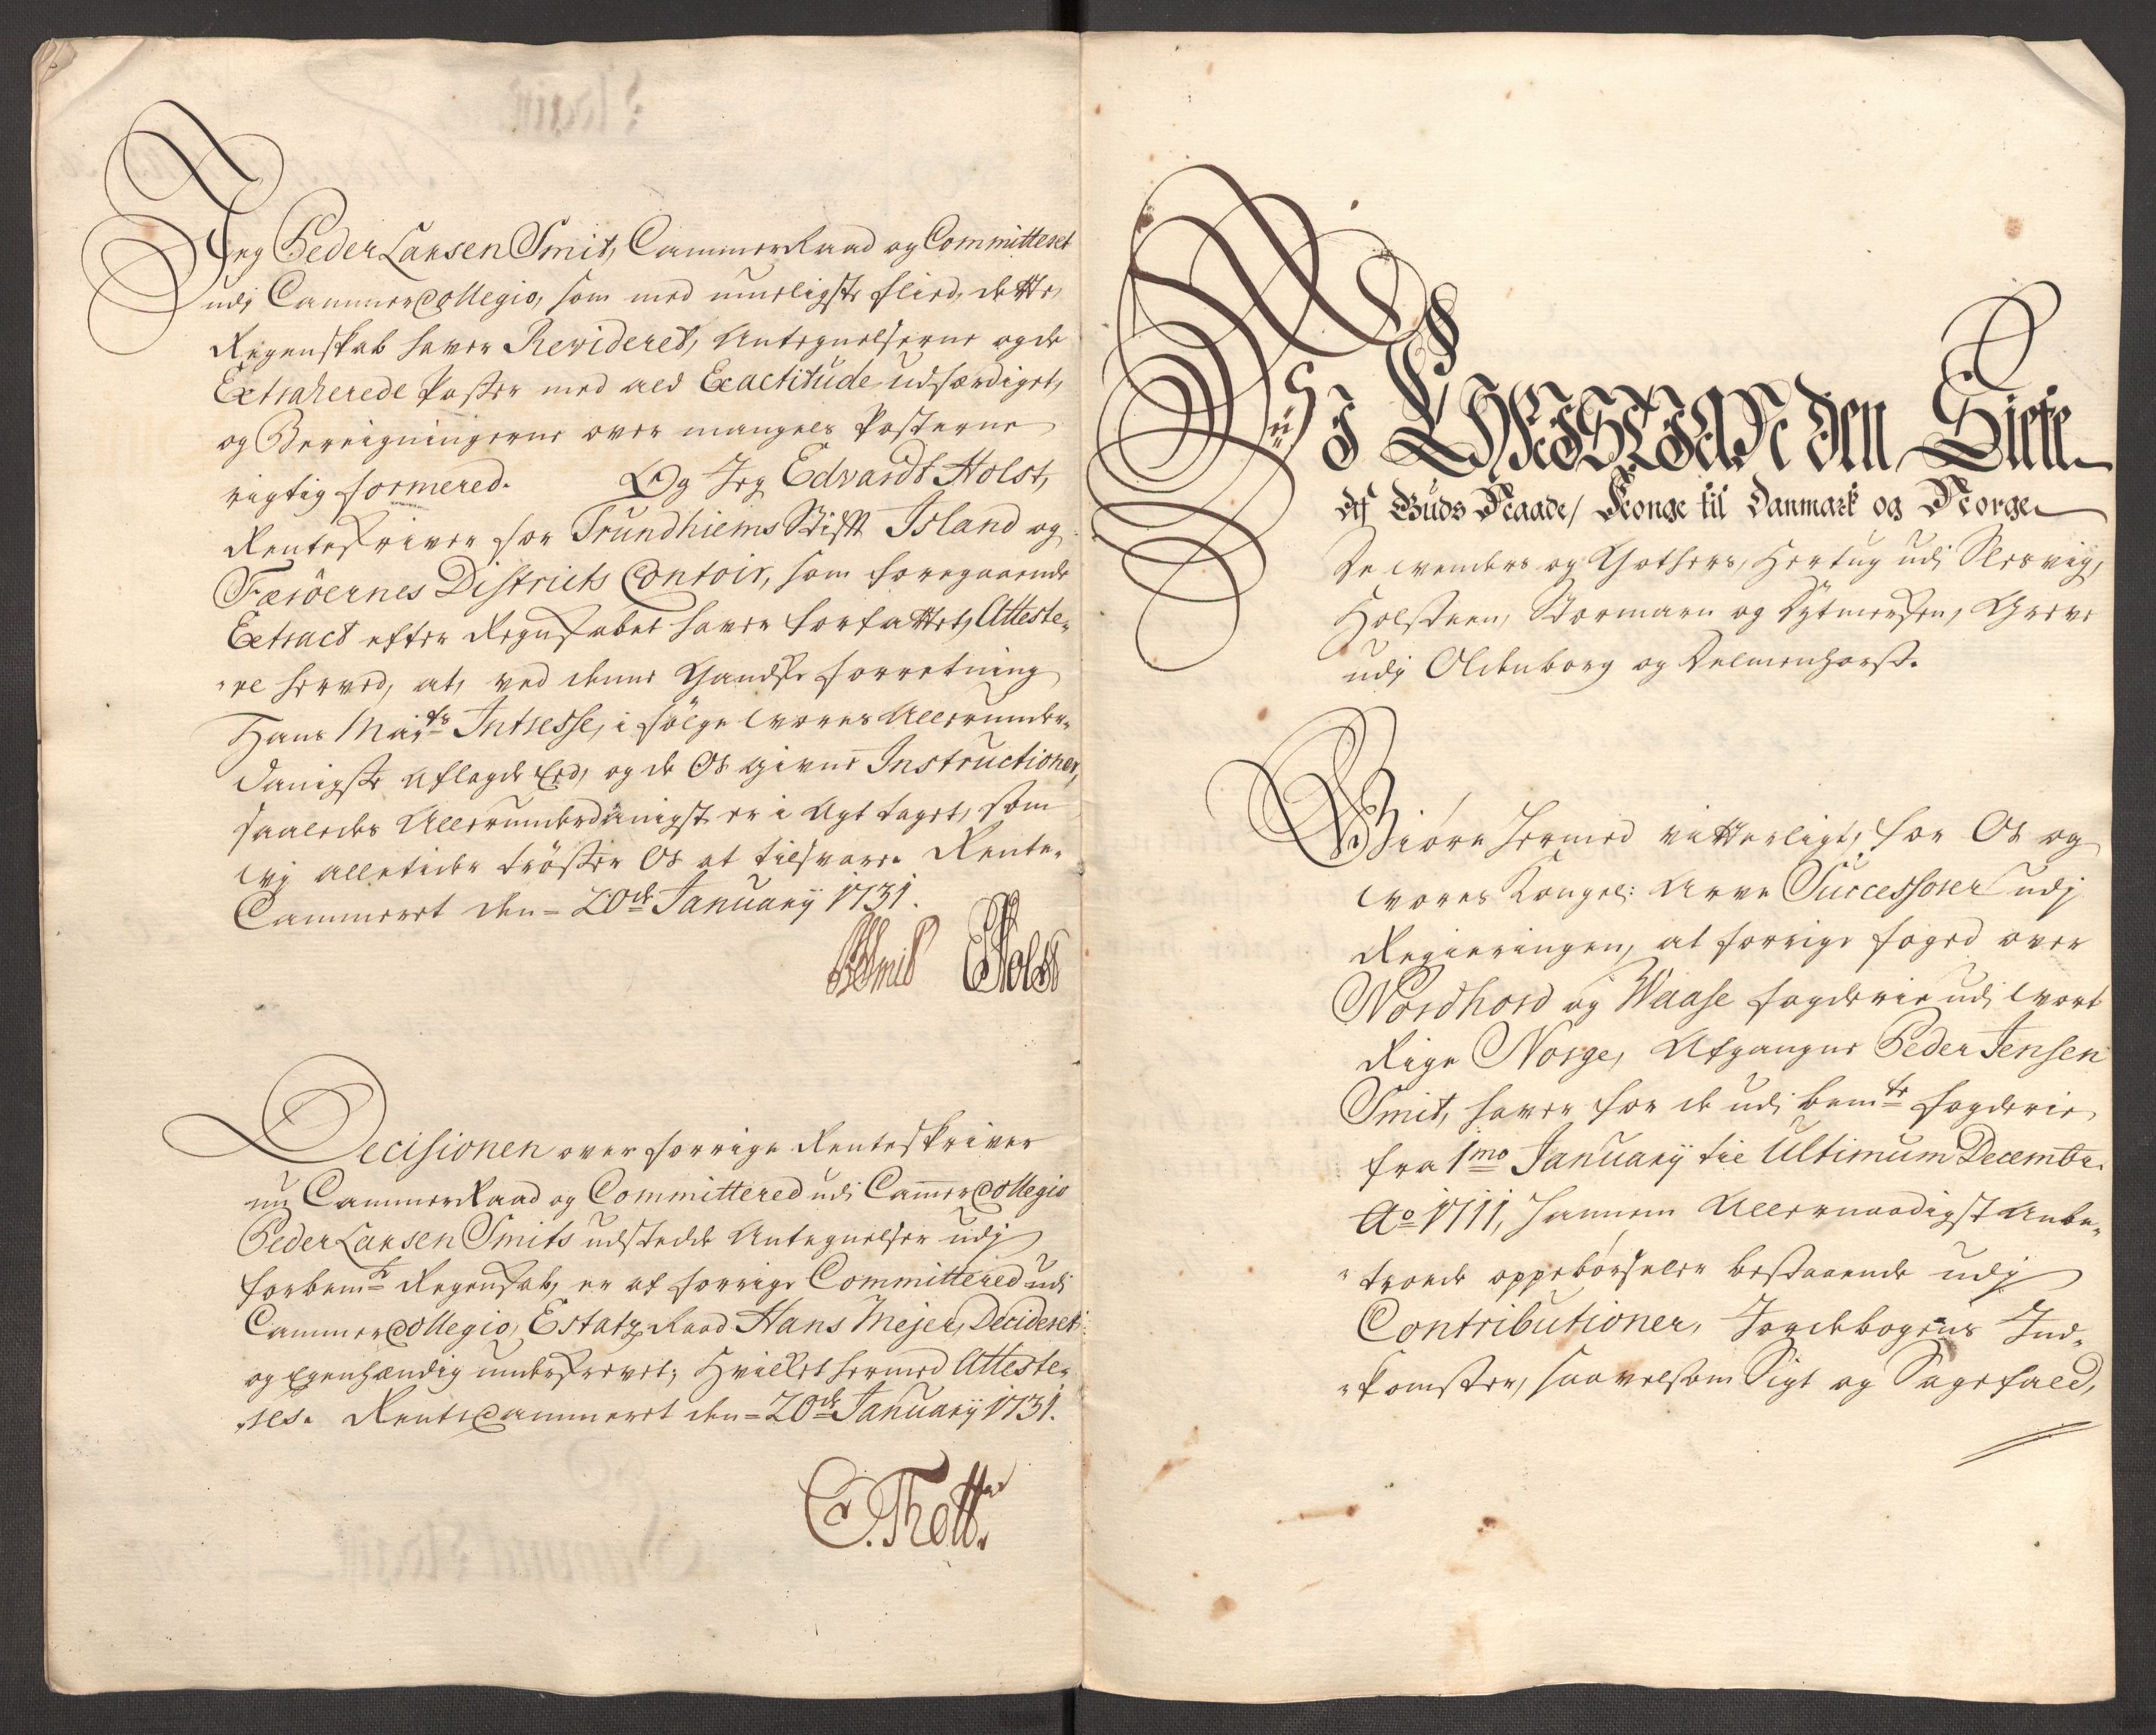 Jeg Peder Larsen Smit, Cammer Raad og Committeret
udj Cammer Collegio, som med mueligste fliid, dette
Regenskab haver Revideret, Antegnelserne og de
Extraherede Poster med ald Exactitude udfærdiget,
og Bereigningerne over mangels Posterne
rigtig formered. Og Jeg Edvardt Holst,
Renteskriver for Trundhiems Stift Island og
Færöernes Districts Contoir, som foregaaende
Extract efter Regnskabet haver forfattet, Atteste-
re herved, at, ved denne Gandske forretning
Hans Maj:ts Intresse, i følge vores Allerunder-
danigste aflagde Eed, og de Os givne Instructioner,
saaledes Allerunderdanigst er i Agt taget, som
vj alletider trøster Os at tilsvare. Rente-
Cammeret den 20de January 1731.
PLSmit EHolst
Decisionen over forrige Renteskriver
nu Cammer Raad og Committered udi Cammer Collegio
Peder Larsen Smits udstedde Antegnelser udj
forbemte Regenskab, er af forrige Committered udi
Cammer Collegio, Estatz Raad Hans Mejer, Decideret
og Egenhændig underskrevet; Hvilket hermed Atteste-
res. Rente Cammeret den 20de January 1731.
C. Thott
Vj CHRISTIAN den Siete
Af Guds Naade, Konge til Danmark og Norge
De Venders og Gothers, Hertug udi Slesvig,
Holsteen, Stormarn og Dytmersken, Greve
udj Oldenborg og Delmenhorst.
Giøre hermed vitterligt, for Os og
vores Kongel: Arve Successorer udj
Regieringen, at forrige foged over
Nordhord og Waase fogderie udi vort
Rige Norge, Afgangne Peder Jensen
Smit, haver for de udi bemte fogderie
fra 1mo January til Ultimum Decembr.
Ao 1711, hannem Allernaadigst Anbe-
troede oppebørseler bestaaende udj
Contributioner, Jordebogens Ind-
komster, saavelsom Sigt og Sagefald,